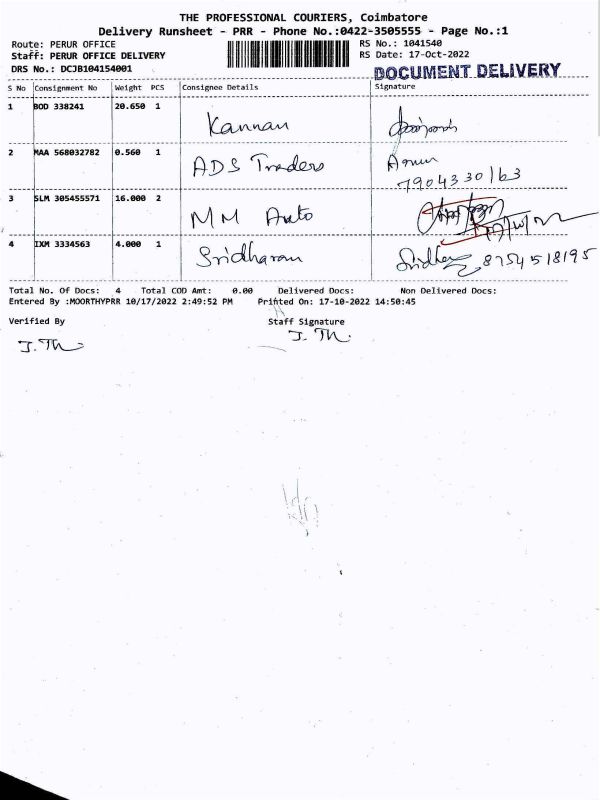 THE PROFESSIONAL COURIERS, Coimbatore
Delivery Runsheet - PRR - Phone No.:0422-3505555 - Page No.:1
Route: PERUR OFFICE RS No.: 1041540
Staff: PERUR OFFICE DELIVERY RS Date: 17-Oct-2022
DRS No.: DCJB104154001 DOCUMENT DELIVERY
S No Consignment No Weight PCS Consignee Details Signature
1 BOD 338241 20.650 1 Kannan
2 MAA 568032782 0.560 1 ADS Traders Arun
7904330163
3 SLM 305455571 16.000 2 MM Auto
4 IXM 3334563 4.000 1 Sridharan Sridhar 8754518195
Total No. Of Docs: 4 Total COD Amt: 0.00 Delivered Docs: Non Delivered Docs:
Entered By :MOORTHYPRR 10/17/2022 2:49:52 PM Printed On: 17-10-2022 14:50:45
Verified By Staff Signature